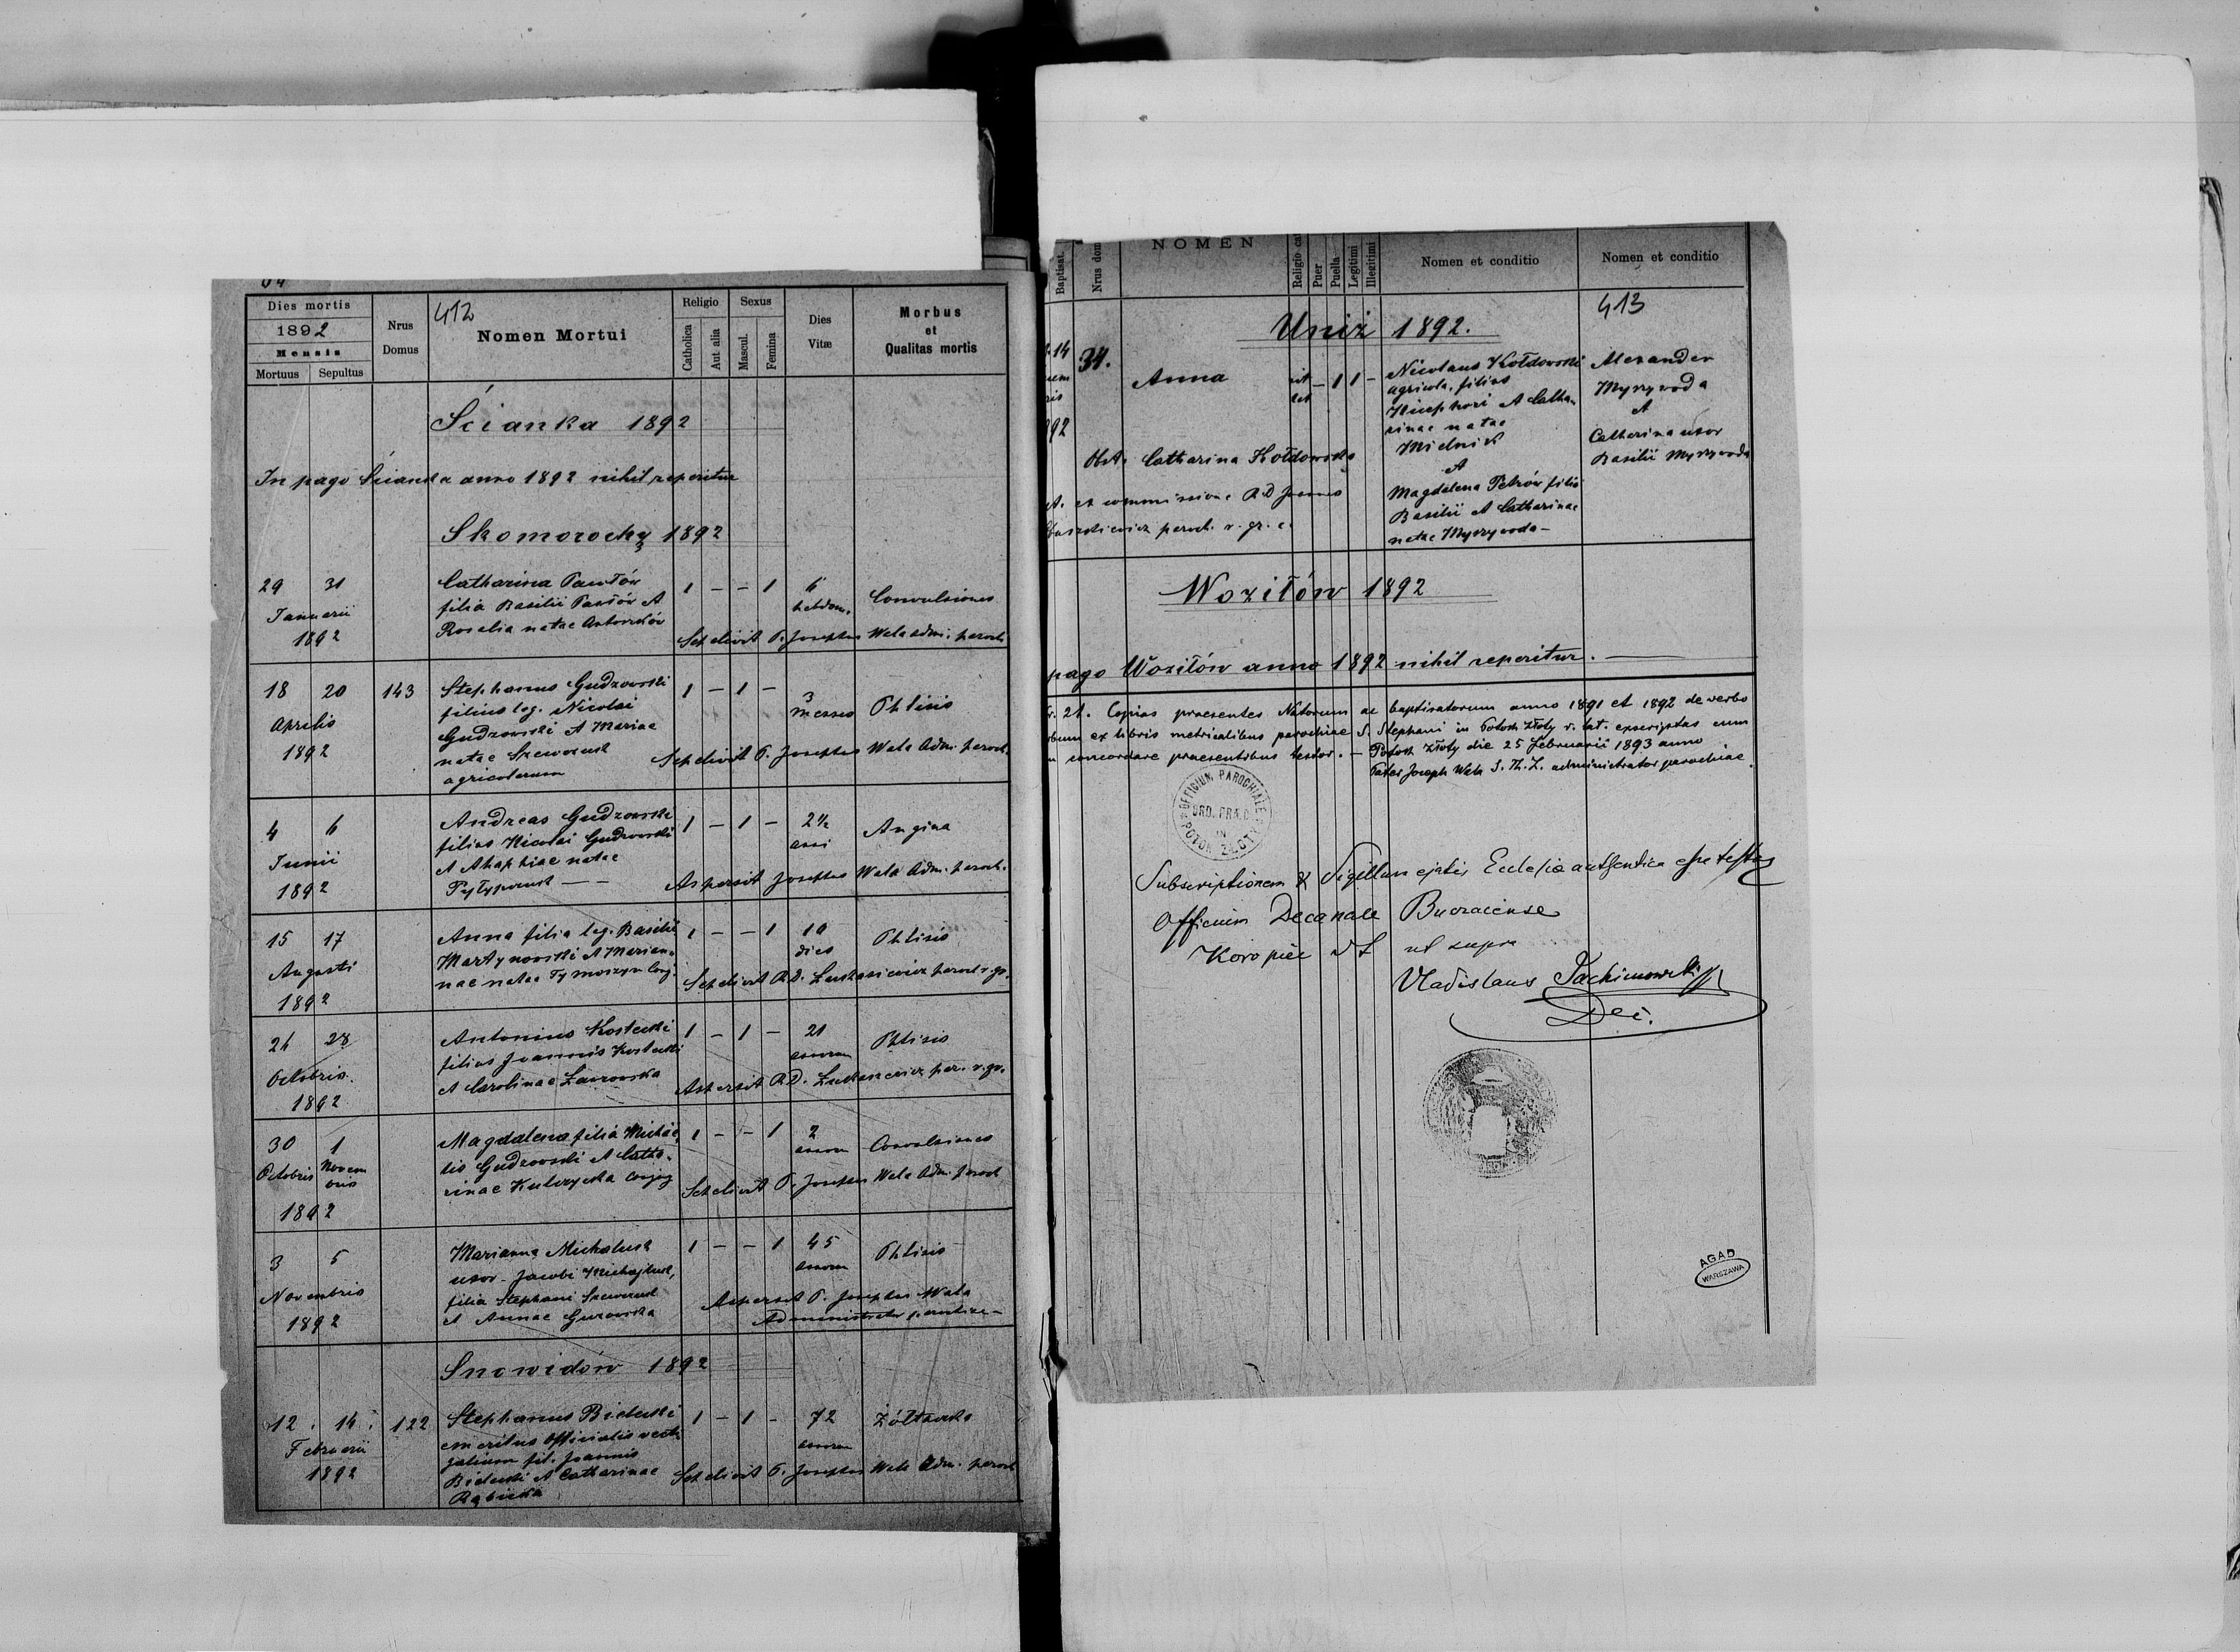 Dies mortis
1892
Mensis
Mortuus
Sepultus
Nrus
Domus
412
Nomen Mortui
Religio
Catholica
Aut alia
Sexus
Mascul.
Femina
Dies
Vitæ
Morbus
et
Qualitas mortis
Ścianka 1892
In pago Ścianka anno 1892 nihil reperitur
Skomorochy 1892
29 31
Januarii
1892
Catharina Pawłów
filia Basilii Pawłów et
Rosalia natae
1 - - 1
6
hebdom.
Convulsiones
Sepelivit P. Josephus Wala Adm. paroch.
18 20
Aprilis
1892
143
Stephanus Gudzowski
filius leg. Nicolai
Gudzowski et Mariae
natae Szewczuk
agricolarum
1 - 1 -
3
menses
Phtisis
Sepelivit P. Josephus Wala Adm. paroch.
4 6
Junii
1892
Andreas Gudzowski
filius Nicolai Gudzowski
et Ahaphiae natae
1 - 1 -
2 1/2
anni
Angina
Aspersit Josephus Wala Adm. paroch.
15 17
Augusti
1892
Anna filia leg. Basilii
Martynowski et Marian-
nae natae Tymoszyn conj.
1 - - 1
10
dies
Phtisis
Sepelivit R.D. Lukasiewicz paroch r. gr.
26 28
Octobris
1892
Antonius Kostecki
filius Joannis Kostecki
et Carolinae Lawrowska
1 - 1 -
21
annorum
Phtisis
Aspersit R.D. Lukasiewicz par. r. gr.
30 1
Octobris Novem
bris
1892
Magdalena filia Michae-
lis Gudzowski et Catha-
rinae Kulczycka conjug
1 - - 1
2
annorum
Convulsiones
Sepelivit P. Josephus Wala Adm. paroch
3 5
Novembris
1892
Marianna Michaluk
uxor Jacobi
filia Stephani Szewczuk
et Annae Gurowska
1 - - 1
45
annorum
Phtisis
Aspersit P. Josephus Wala
Administrator parochiae
Snowidów 1892
12. 14.
Februarii
1892
122
Stephanus Bielecki
emeritus officialis vecti-
galium fil. Joannis
Bielecki et Catharinae
1 - 1 -
72
annorum
Żółtaczka
Sepelivit P. Josephus Wala Adm. paroch
Baptisat.
Nrus dom
NOMEN
Religio cat
Puer
Puella
Legitimi
Illegitimi
Nomen et conditio
Nomen et conditio
413
Uniż 1892.
14
34.
Anna
- 1 1 -
Nicolaus Kołdowski
agricola, filius
Nicephori et Catha-
rinae natae
Mielnik
et
Magdalena Petrów filia
Basilii et Catharinae
natae Myrzywoda
Alexander
Myrzywoda
et
Catherina uxor
Basilii Myrzywoda
Obst. Catharina Kołdowska
et commissione R.D. Joannes
paroch. r. gr. c.
Woziłów 1892
pago Woziłów anno 1892 nihil reperitur.
21. Copias praesentes Natorum ac baptisatorum anno 1891 et 1892 de verbo
ex libris metricalibus parochiae S. Stephani in Potok Złoty r. lat. exscriptas cum
concordare praesentibus testor. — Potok Złoty die 25 Februarii 1893 anno
Pater Joseph Wala S. Th. L. administrator parochiae.
OFFICIUM PAROCHIALE
ORD. PRÆD.
IN
POTOK ZŁOTY
Subscriptionem & Sigillum ejatis Ecclesiae authentica esse testor
Officium Decanale Buczaciense
Koropiec dt ut supra
Vladislaus Jachimowski
Dec.
AGAD
WARSZAWA